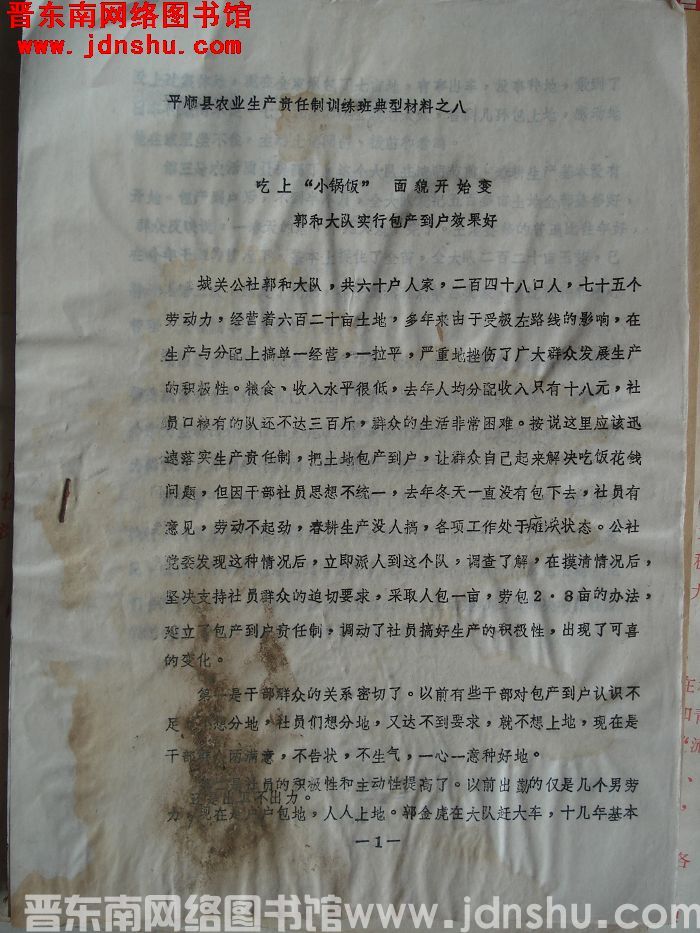 晋东南网络图书馆
www.jdnshu.com
平顺县农业生产责任制训练班典型材料之八
吃上“小锅饭” 面貌开始变
郭和大队实行包产到户效果好
城关公社郭和大队，共六十户人家，二百四十八口人，七十五个
劳动力，经营着六百二十亩土地，多年来由于受极左路线的影响，在
生产与分配上搞单一经营，一拉平，严重地挫伤了广大群众发展生产
的积极性。粮食、收入水平很低，去年人均分配收入只有十八元，社
员口粮有的队还不达三百斤，群众的生活非常困难。按说这里应该迅
速落实生产责任制，把土地包产到户，让群众自己起来解决吃饭花钱
问题，但因干部社员思想不统一，去年冬天一直没有包下去，社员有
意见，劳动不起劲，春耕生产没人搞，各项工作处于瘫痪状态。公社
党委发现这种情况后，立即派人到这个队，调查了解，在摸清情况后，
坚决支持社员群众的迫切要求，采取人包一亩，劳包2·8亩的办法，
建立了包产到户责任制，调动了社员搞好生产的积极性，出现了可喜
的变化。
第一是干部群众的关系密切了。以前有些干部对包产到户认识不
足 不想分地，社员们想分地，又达不到要求，就不想上地，现在是
干部群众两满意，不告状，不生气，一心一意种好地。
第二是社员的积极性和主动性提高了。以前出勤的仅是几个男劳
还是出工不出力。
力，现在是户户包地，人人上地。郭金虎在大队赶大车，十几年基本
—1—
晋东南网络图书馆 www.jdnshu.com